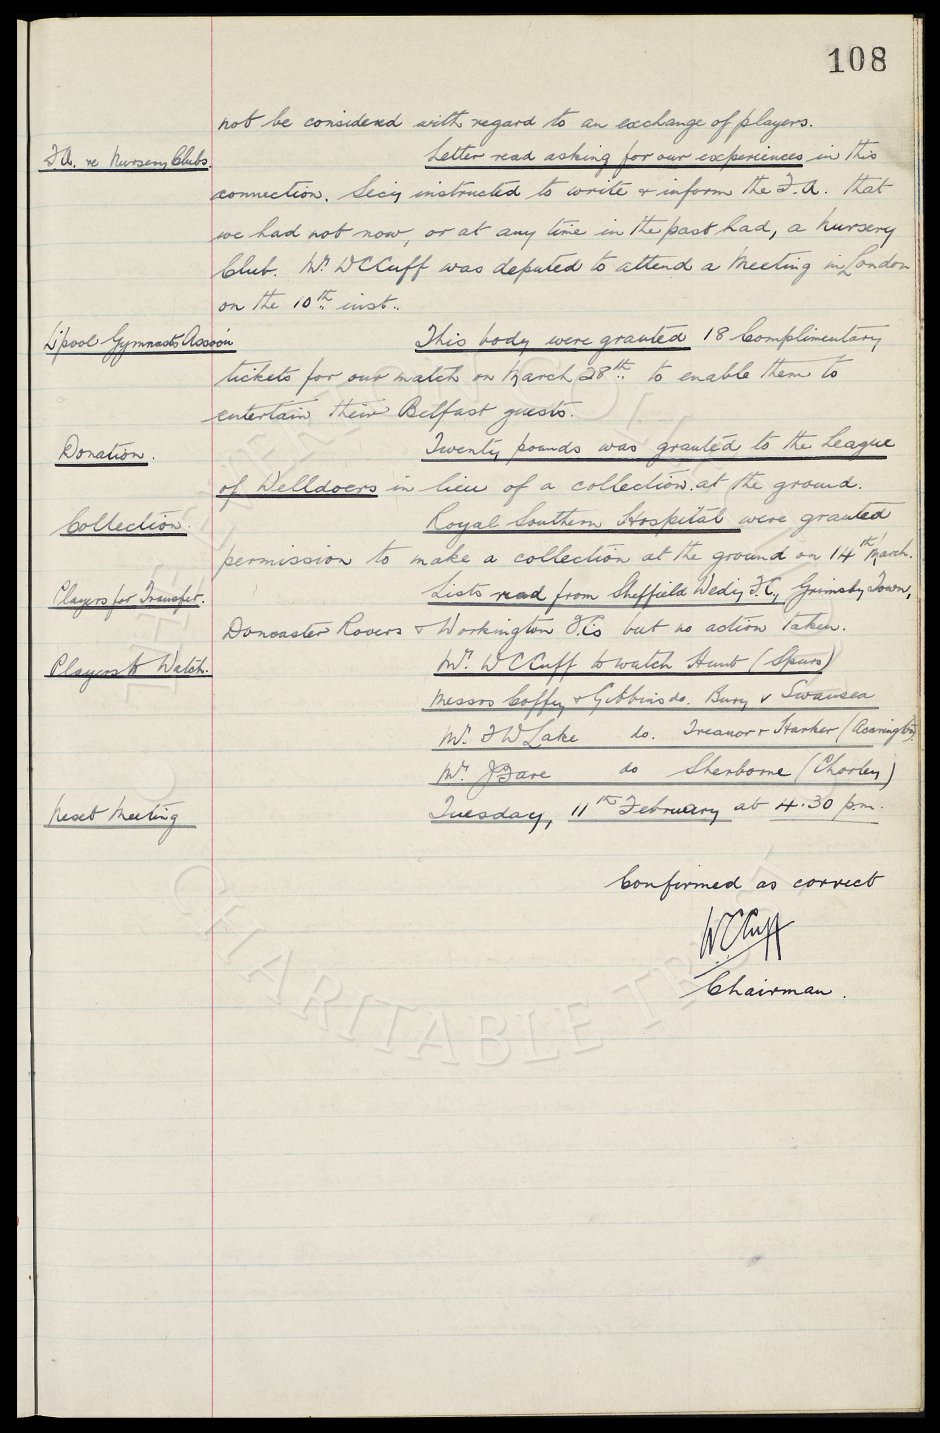 108
not be considered with regard to an exchange of players.
F.A. re Nursery Clubs. Letter read asking for our experiences in this
connection. Secy instructed to write & inform the F.A. that
we had not now, or at any time in the past had, a Nursery
Club. Mr. WCCuff was deputed to attend a Meeting in London
on the 10th inst..
L'pool Gymnasts Assocn This body were granted 18 Complimentary
tickets for our match on March 28th. to enable them to
entertain their Belfast guests.
Donation. Twenty pounds was granted to the League
of Welldoers in lieu of a collection at the ground.
Collection. Royal Southern Hospital were granted
permission to make a collection at the ground on 14th March.
Players for Transfer. Lists read from Sheffield Wedy F.C., Grimsby Town,
Doncaster Rovers & Workington F.Cs but no action taken.
Players to Watch. Mr. WCCuff to watch Hunt (Spurs)
Messrs Coffey & Gibbins do. Bury v Swansea
Mr. FWLake do. Treanor & Harker (Accrington).
Mr. J Fare do Sherborne (Chorley)
Next Meeting Tuesday, 11th February at 4.30 pm.
Confirmed as correct
W.C.Cuff
Chairman.
THE EVERTON COLLECTION
CHARITABLE TRUST